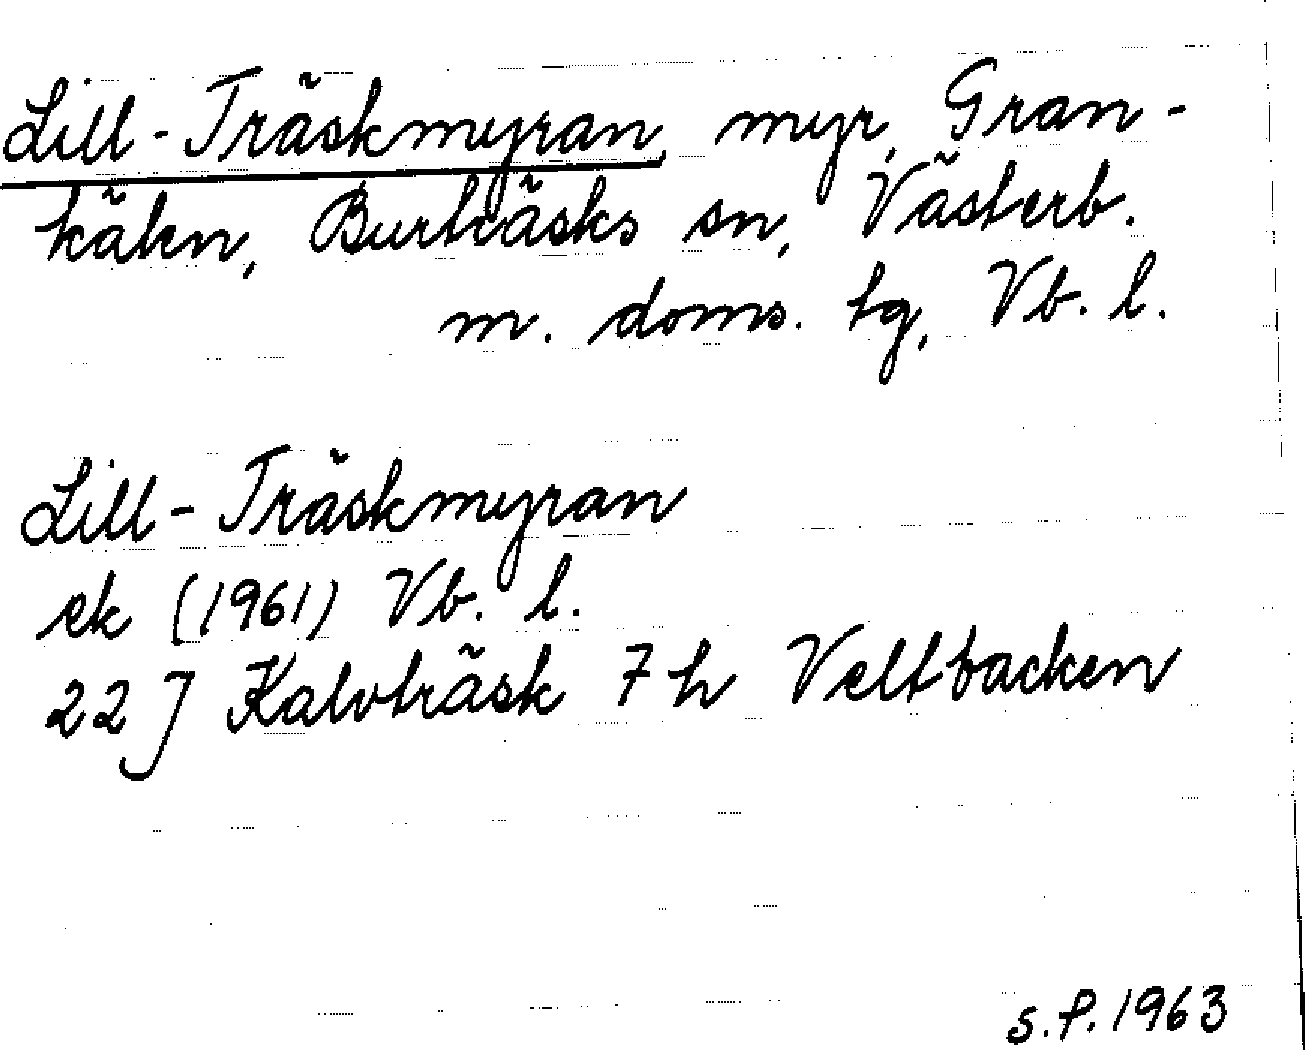 Lill-Träskmyran, myr, Gran-
kälen, Burträsks sn, Västerb.
m. doms. tg, Vb. l.
Lill-Träskmyran
ek (1961) Vb. l.
22 J Kalvträsk 7 h Veltbacken
S.P. 1963